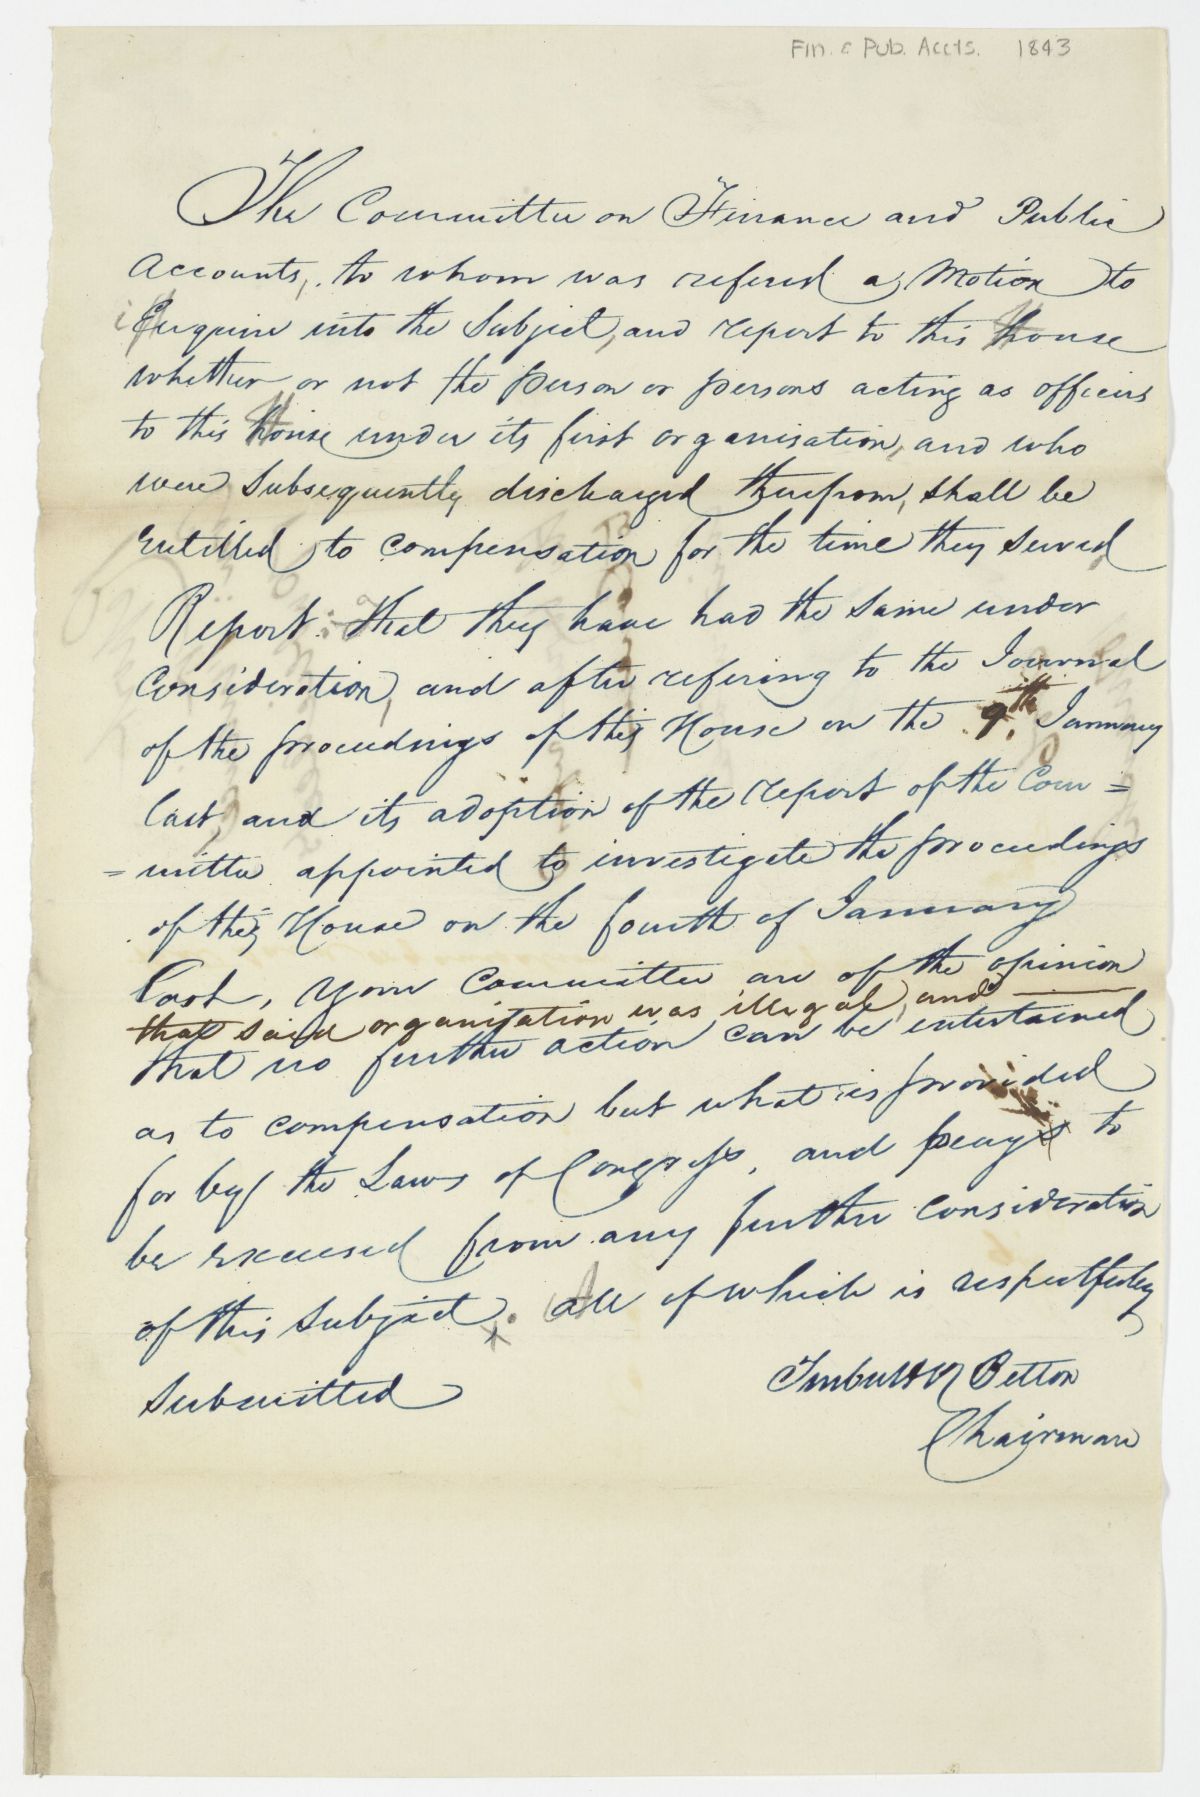 Fin. & Pub. Accts. 1843
The Committee on Finance and Public
Accounts, to whom was refered a Motion to
Enquire into the Subject, and report to this House
whether or not the person or persons acting as officers
to this House under its first organisation, and who
were Subsequently discharged therefrom, shall be
entitled to compensation for the time they served
Report. That they have had the same under
Consideration, and after refering to the Journal
of the proceedings of this House on the 9th January
last, and its adoption of the report of the Com=
=mittee appointed to investigate the proceedings
of this House on the fourth of January
last, your Committee are of the opinion
that said organization was illegal, and
that no further action can be entertained
as to compensation but what is provided
for by the Laws of Congress, and pray to
be excused from any further consideration
of this Subject. All of which is respectfully
Submitted
Turbutt R Betton
Chairman